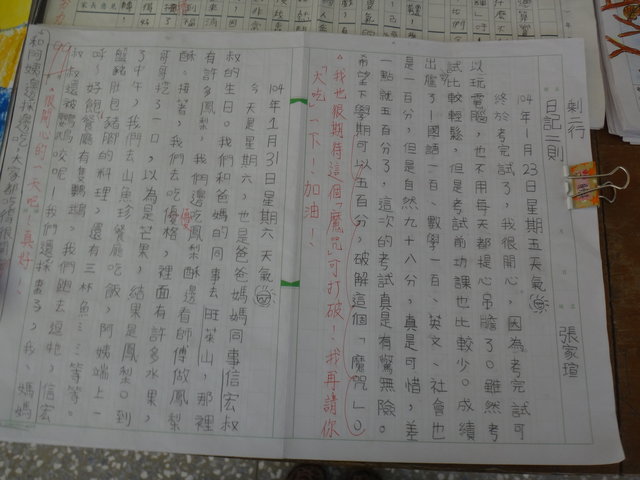 剩二行
日記二則
張家瑄
104年1月23日星期五天氣
終於考完試了，我很開心，因為考完試可
以玩電腦，也不用每天都提心吊膽了。雖然考
試比較輕鬆，但是考試前功課也比較少。成績
出爐了！國語一百、數學一百、英文、社會也
是一百分，但是自然九十八分，真是可惜，差
一點就五百分了，這次的考試真是有驚無險。
希望下學期可以五百分，破解這個「魔咒」。
我也很期待這個「魔咒」可打破！我再請你
「大吃」一下！加油！
104年1月31日星期六天氣
今天是星期六，也是爸爸媽媽同事信宏叔
叔的生日。我們和爸媽的同事去旺萊山，那裡
有許多鳳梨，我們邊吃鳳梨酥邊看師傅做鳳梨
酥。接著，我們去吃優格，裡面有許多水果，
優
哥哥挖了一口，以為是芒果，結果是鳳梨。到
了中午，我們去山魚珍餐廳吃飯，阿姨端上一
盤豬肚包豬腳的料理，還有三杯魚……等等。
呼～好飽！餐廳有隻鸚鵡，我們跑去逗牠，信宏
叔叔還被鸚鵡咬呢！我們還採草莓，我、媽媽
和阿姨邊採邊吃，大家都吃得很
很開心的一天呢！真好！